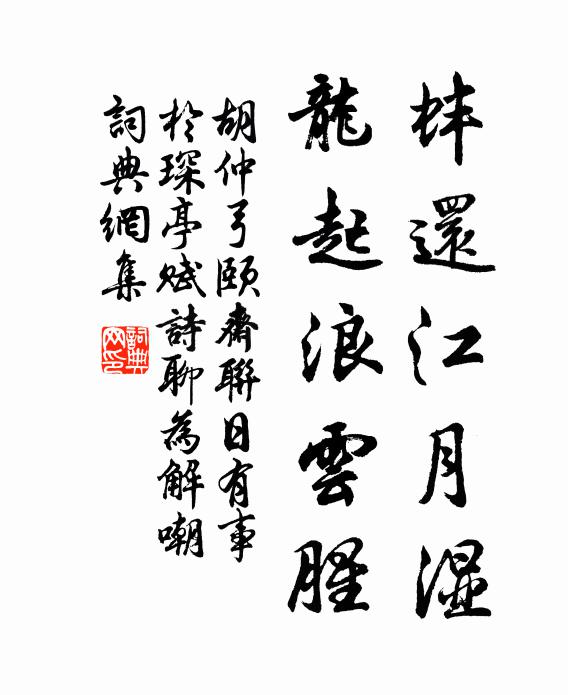 蚌還江月湿
龍起浪雲腥
胡仲弓頤齋聯日有事
於琛亭賦詩聊為解嘲
詞典網集
詞典
网印